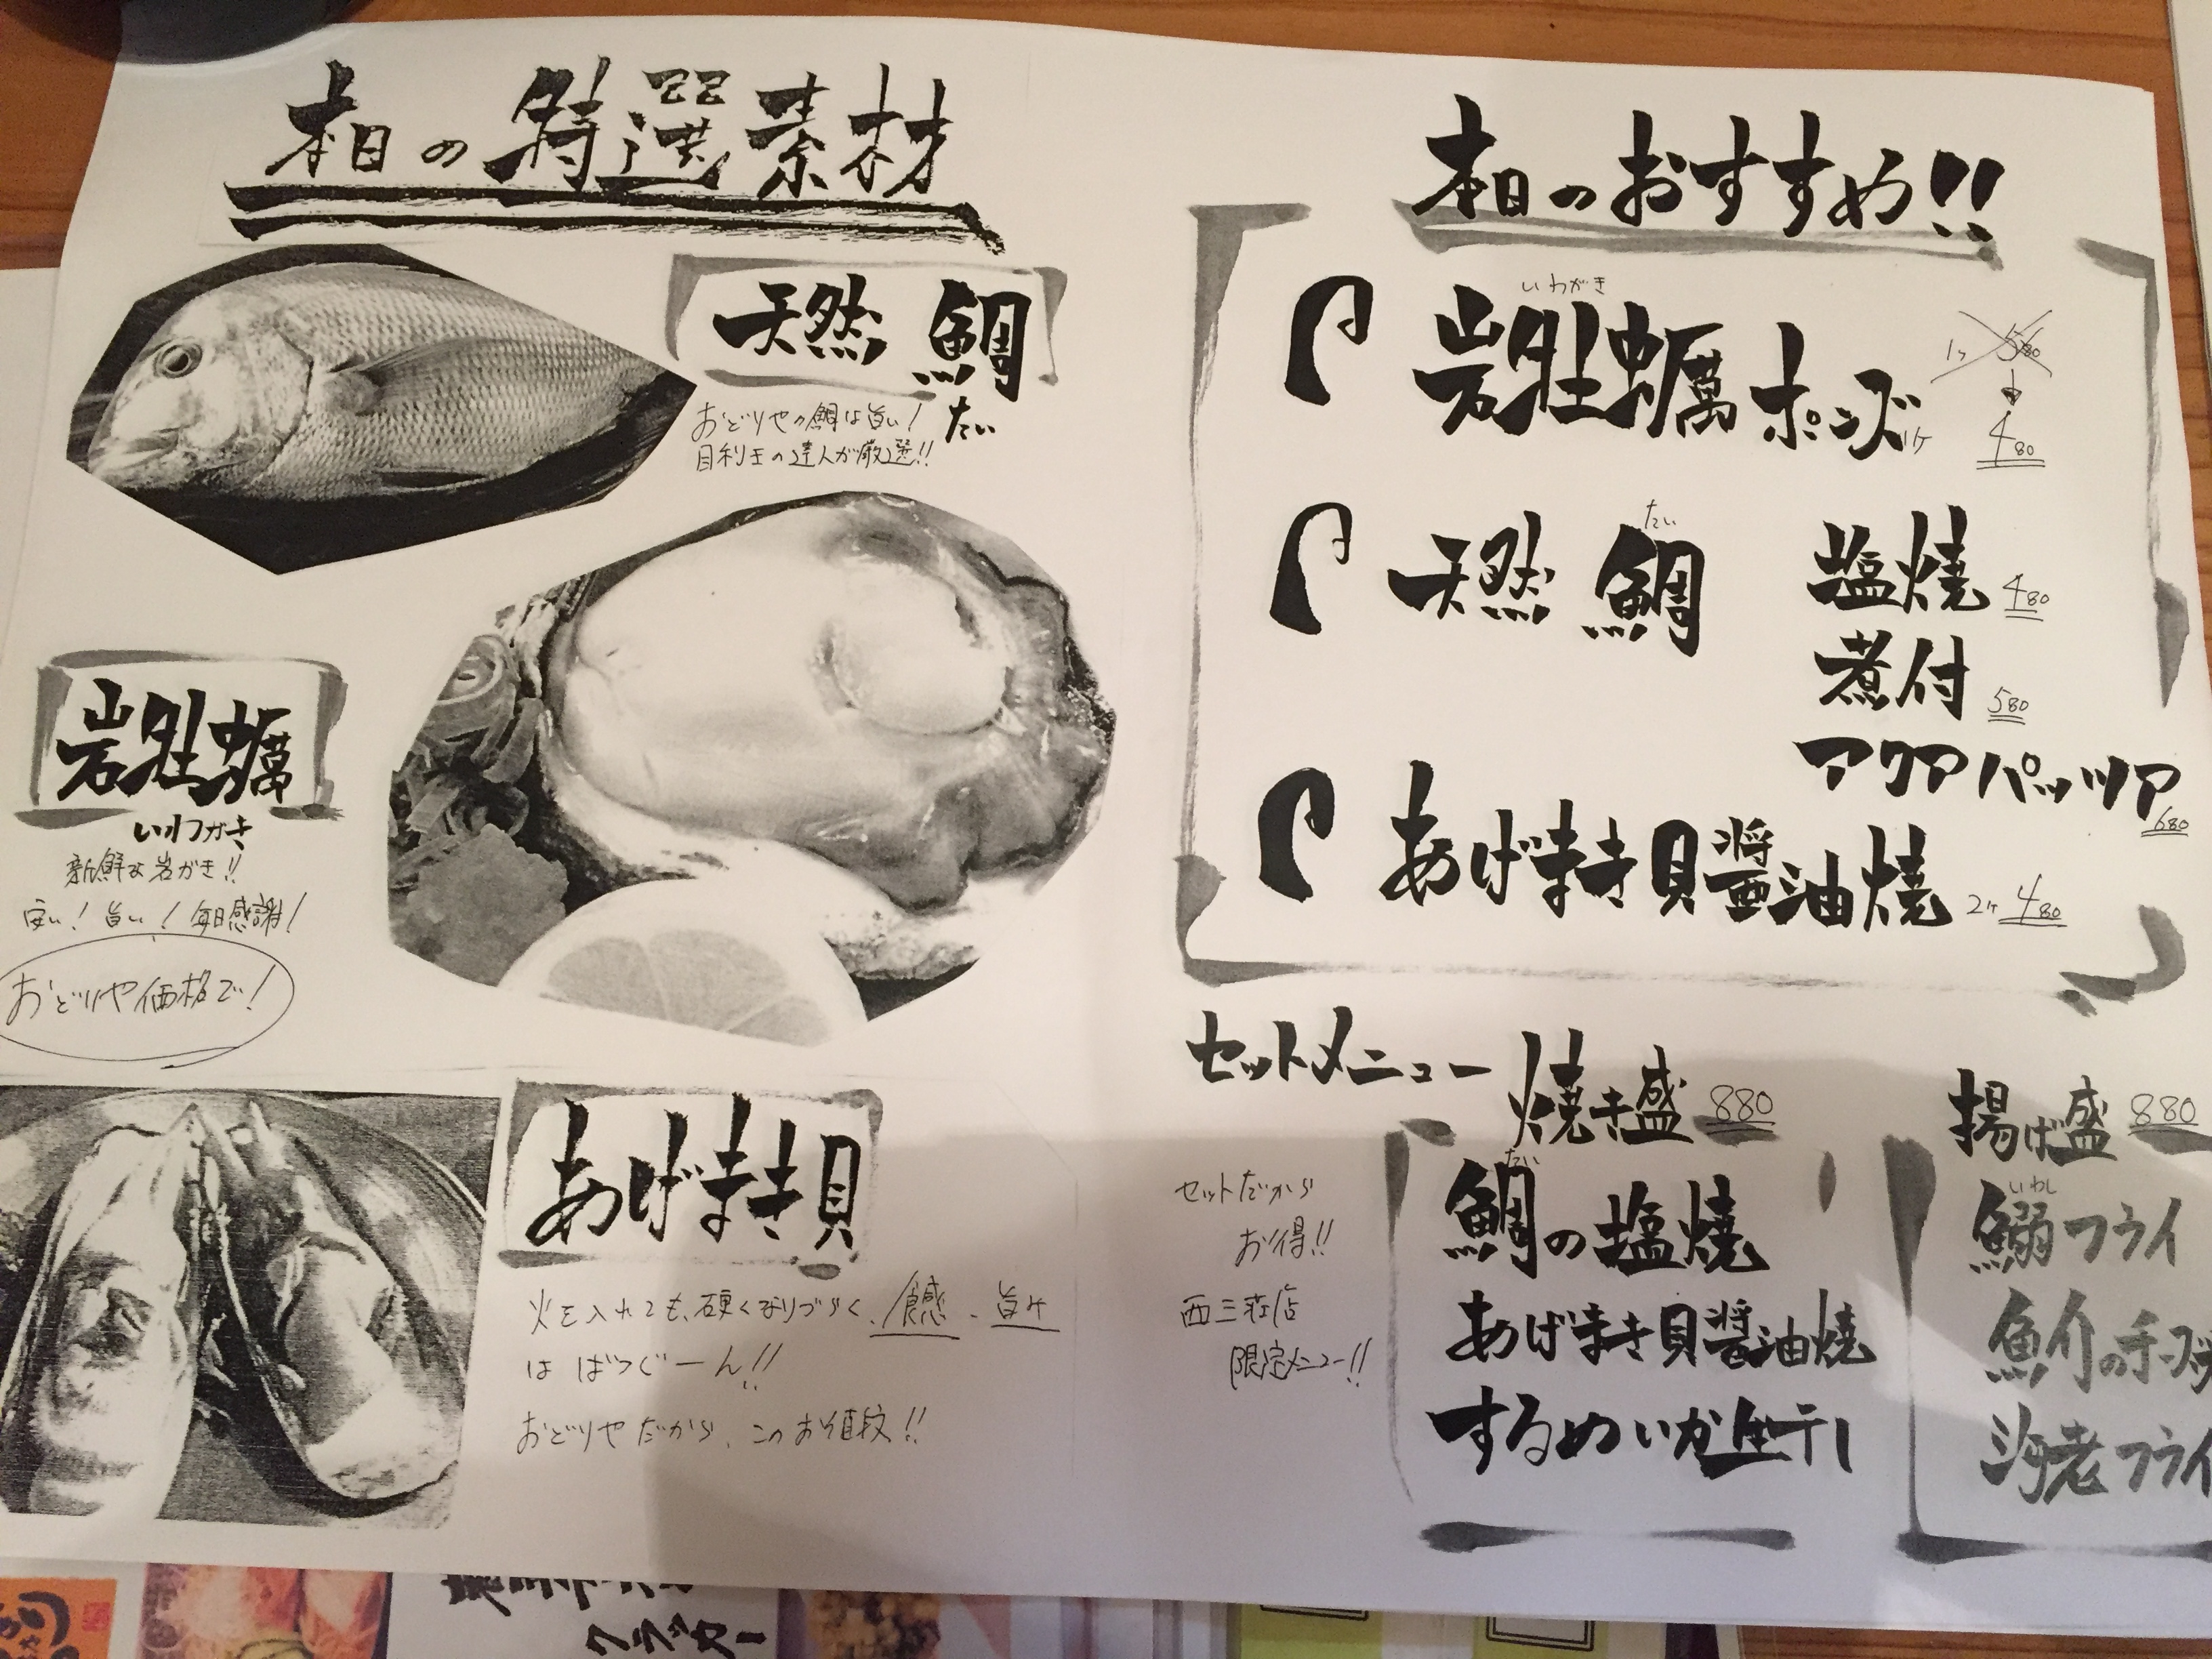 本日の特選素材
天然 鯛
たい
おどりやの鯛は旨い!
目利きの達人が厳選!!
岩牡蠣
いわがき
新鮮な岩がき!!
安い! 旨い! 毎日感謝!
おどりや価格で!
あげまき貝
火を入れても、硬くなりづらく、食感、旨み
は ばつぐーん!!
おどりやだから、このお値段!!
本日のおすすめ!!
いわがき
岩牡蠣ポンズ 1ヶ
1ヶ 580
480
たい
天然 鯛 塩焼 480
煮付 580
アクアパッツア 680
あげまき貝醤油焼 2ヶ 480
セットメニュー
セットだから
お得!!
西三荘店
限定メニュー!!
焼き盛 880
たい
鯛の塩焼
あげまき貝醤油焼
するめいか生干し
揚げ盛 880
いわし
鰯フライ
魚介のチーズ
海老フライ
クラッカー